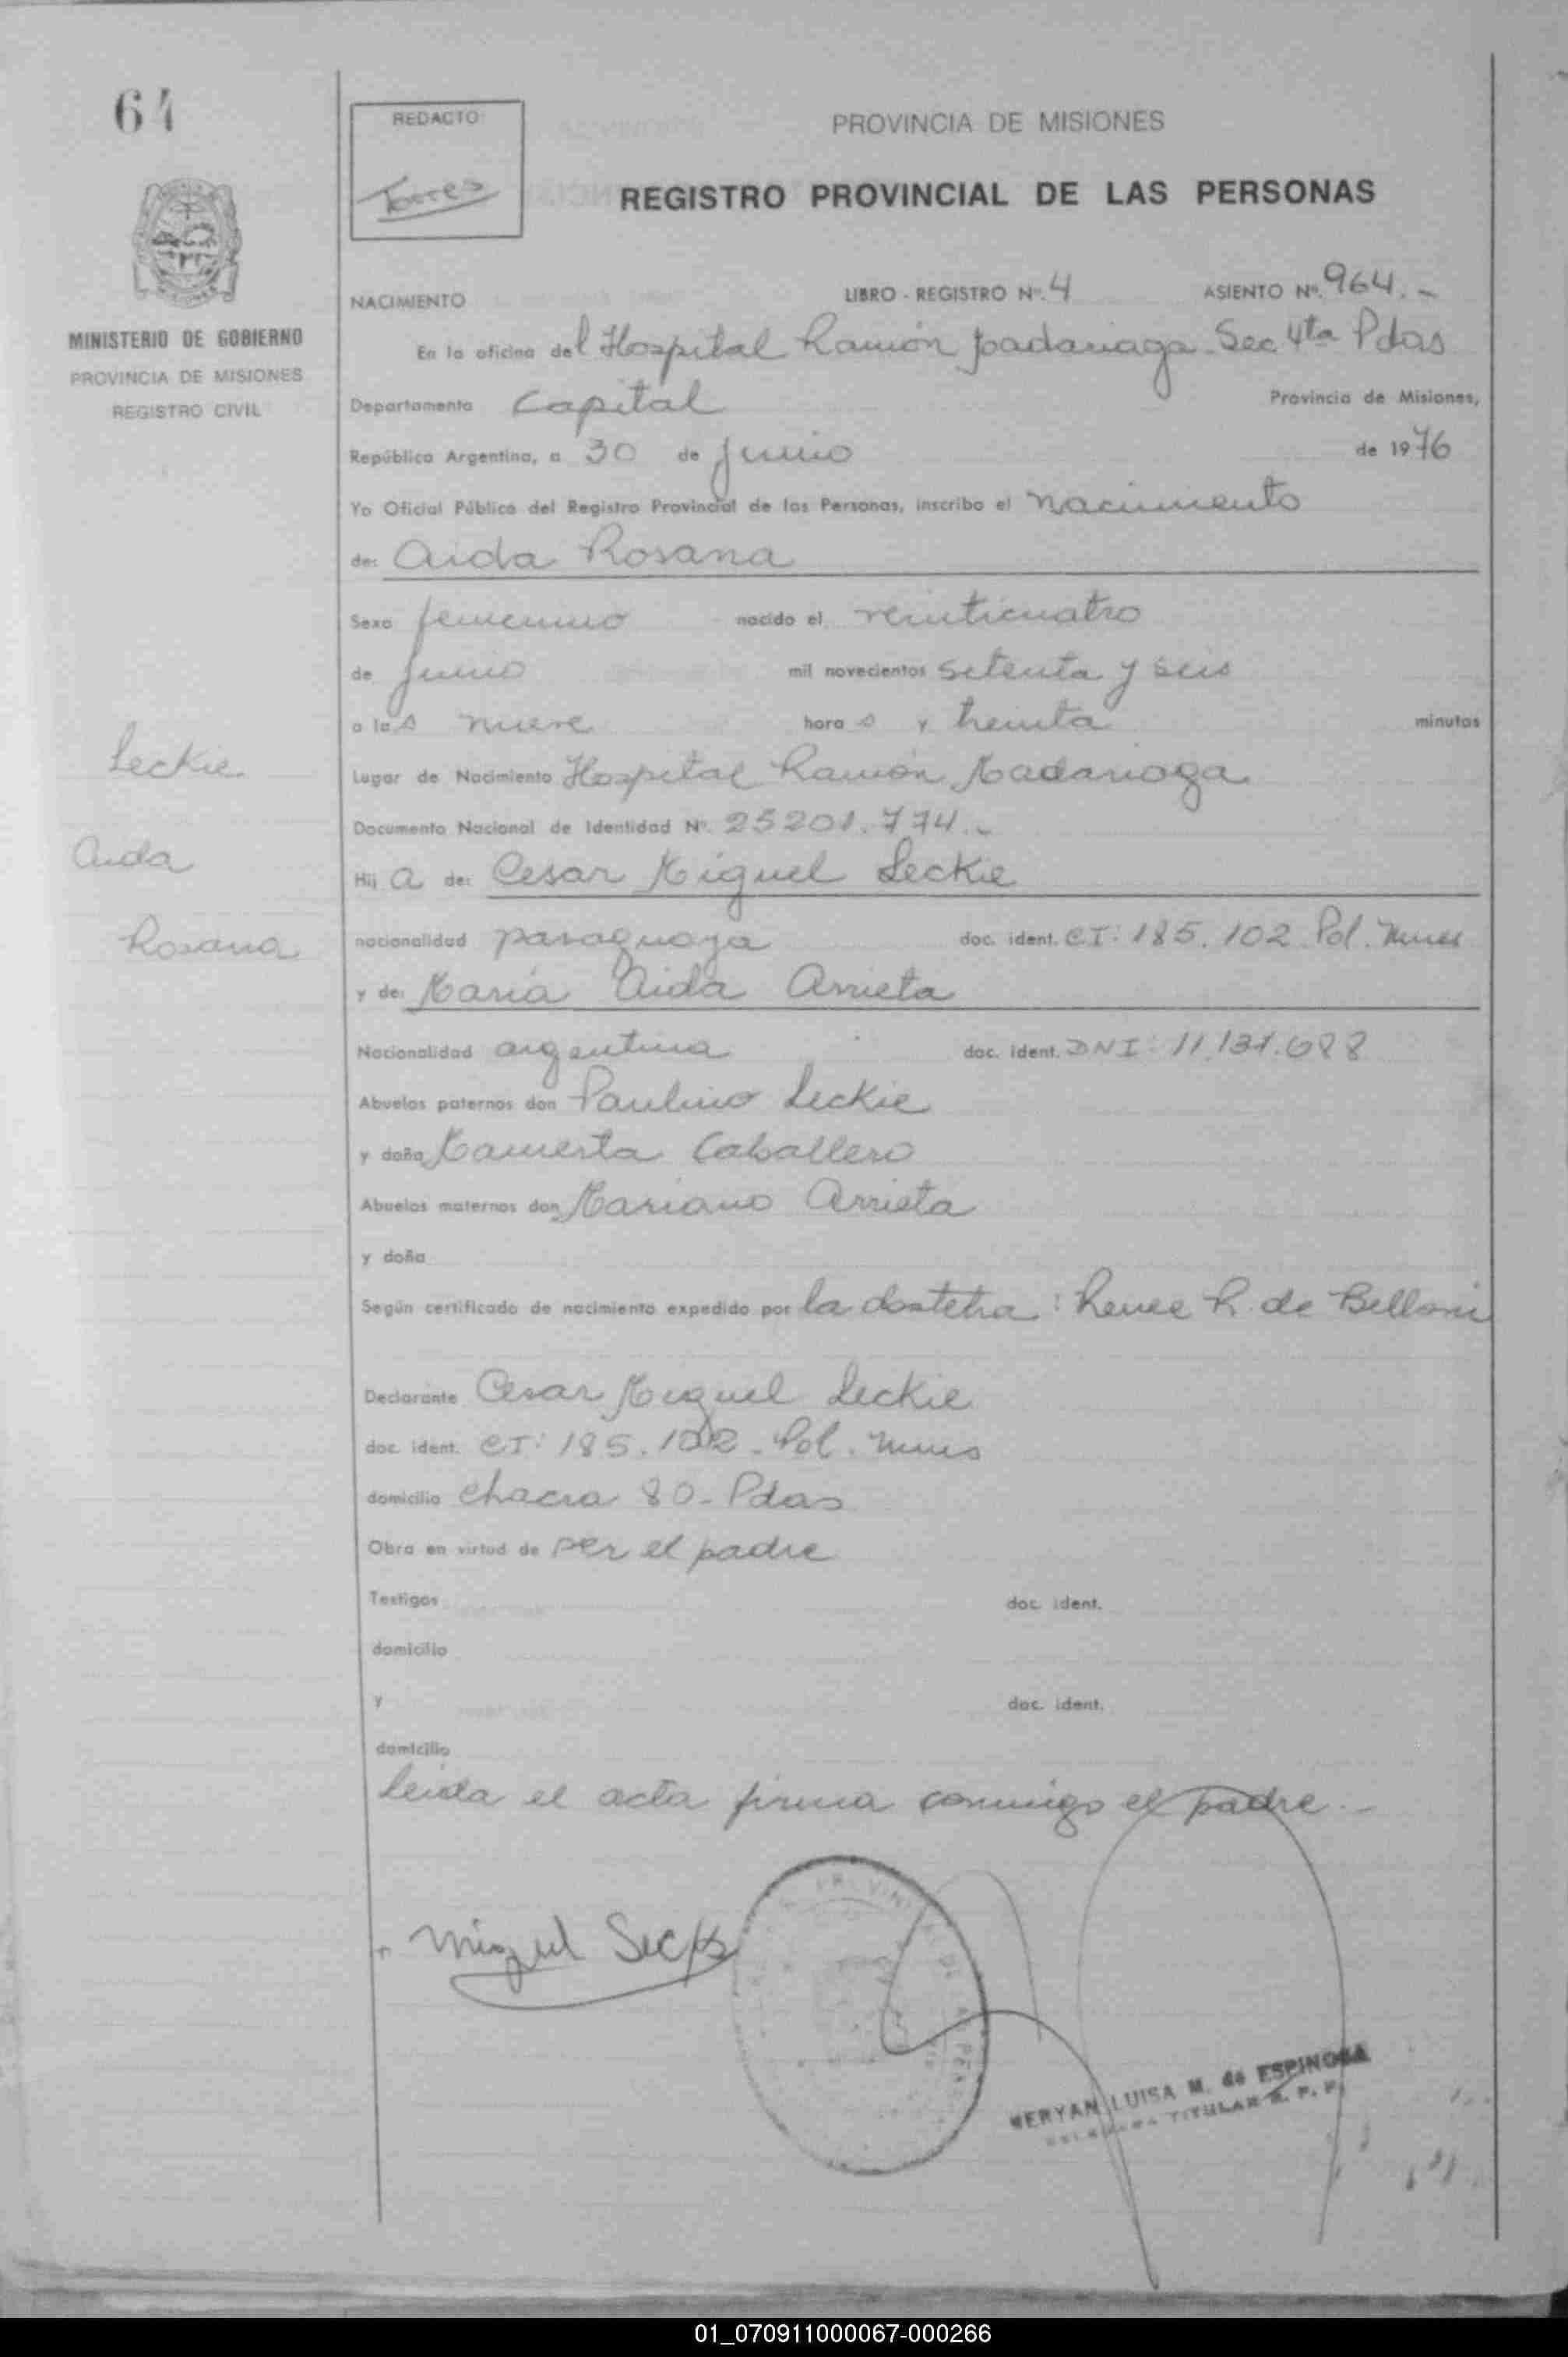 64
REDACTO
Torres
PROVINCIA DE MISIONES
REGISTRO PROVINCIAL DE LAS PERSONAS
MINISTERIO DE GOBIERNO
PROVINCIA DE MISIONES
REGISTRO CIVIL
NACIMIENTO LIBRO - REGISTRO Nº. 4 ASIENTO Nº. 964.-
En la oficina del Hospital Ramón Madariaga Sec 4ta Pdas
Departamento Capital Provincia de Misiones,
República Argentina, a 30 de Junio de 1976
Yo Oficial Público del Registro Provincial de las Personas, inscribo el nacimiento
de: Aida Rosana
Sexo femenino nacido el veinticuatro
de Junio mil novecientos setenta y seis
a las nueve horas y treinta minutos
Lugar de Nacimiento Hospital Ramón Madariaga
Documento Nacional de Identidad Nº. 25201.774.-
Hija de: Cesar Miguel Leckie
nacionalidad paraguaya doc. ident. CI: 185.102 Pol. Mnes
y de: María Aida Arrieta
Nacionalidad argentina doc. ident. DNI: 11.131.688
Abuelos paternos don Paulino Leckie
y doña Mamerta Caballero
Abuelos maternos don Mariano Arrieta
y doña
Según certificado de nacimiento expedido por la obstetra: Renee R. de Belloni
Declarante Cesar Miguel Leckie
doc. ident. CI: 185.102 - Pol. Mnes
domicilio chacra 80 - Pdas
Obra en virtud de ser el padre
Testigos doc. ident.
domicilio
y doc. ident.
domicilio
Leida el acta firma conmigo el padre.-
Leckie
Aida
Rosana
Miguel Leckie
MERYAN LUISA M. de ESPINOSA
TITULAR R. P. P.
01_070911000067-000266